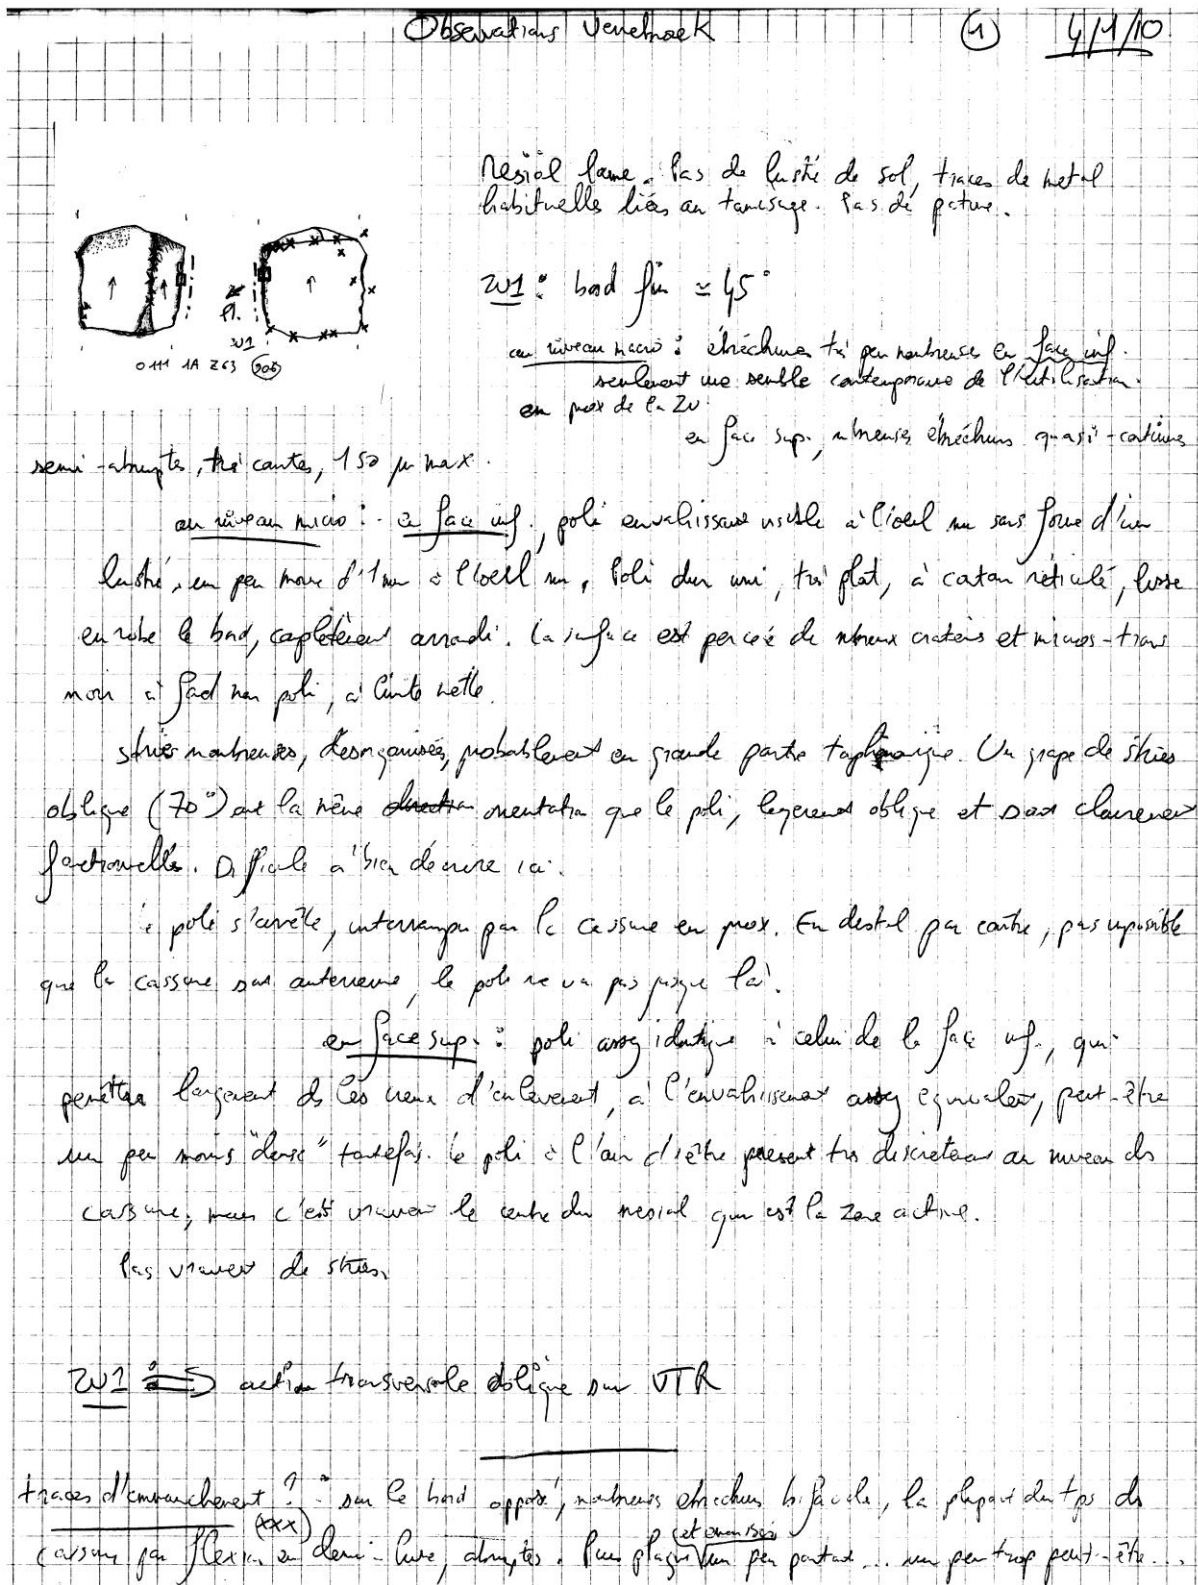 Observations Verrebroek (1) 4/1/10
Mesial lame. Pas de lustré de sol, traces de métal
habituelles liées au tamisage. Pas de patine.
ZU1 : bord fin ≃ 45°
au niveau macro : ébréchures très peu nombreuses en face inf.
seulement une semble contemporaine de l'utilisation.
en prox de la ZU
en face sup., nbreuses ébréchures quasi-continues
Pl.
ZU1
0111 1A Z63 606
semi-abruptes, très courtes, 150 µ max.
au niveau micro : - en face inf., poli envahissant visible à l'oeil nu sous forme d'un
lustré, un peu moins d'1mm à l'oeil nu, Poli dur uni, très plat, à coalescence réticulé, lisse
enrobe le bord, complètement arrondi. La surface est percée de nbreux cratères et micros-trous
noirs à fond non poli, à limite nette.
stries nombreuses, désorganisées, probablement en grande partie taphonomique. Un groupe de stries
oblique (70°) ont la même orientation que le poli, légèrement oblique et sont clairement
fonctionnelles. Difficile à bien décrire ici.
Le poli s'arrête, interrompu par la cassure en prox. En distal par contre, pas impossible
que la cassure soit antérieure, le poli ne va pas jusque là.
en face sup. : poli assez identique à celui de la face inf., qui
pénètre largement ds les creux d'enlèvement, à l'envahissement assez équivalent, peut-être
un peu moins "dense" toutefois. Le poli a l'air d'être présent très discrètement au niveau des
cassure, mais c'est vraiment le centre du mésial qui est la zone active.
Pas vraiment de stries.
ZU1 : ⇒ action transversale oblique sur VTR
traces d'emmanchement ? : sur le bord opposé, nombreuses ébréchures bifaciale, la plupart du tps ds
(xxx) (et
cassures par flexion en demi-lune, abruptes. Puis plages un peu partout... un peu trop peut-être...